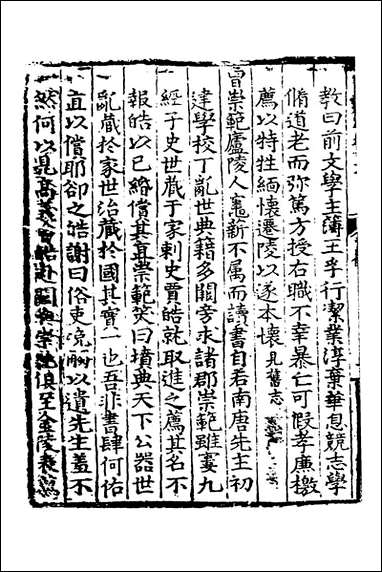 教曰前文學主薄王孚行潔業淳棄華息競志學
脩道老而弥篤方授右職不幸暴亡可假孝廉檄
薦以特牲緬懷遷陵以遂本懷見舊志
曾崇範廬陵人竃薪不属而讀書自若南唐先主初
建學校丁亂世典籍多闕旁求諸郡崇範雖窶九
經子史世蔵于家刺史賈皓就取進之薦其名不
報皓以己緡償其直崇範笑曰墳典天下公器世
亂蔵扵家世治蔵扵國其實一也吾非書肆何佑
直以償耶卻之皓謝曰俗吏浼觸以遺先生羞不
然何以見高義皓赴闕與崇範俱至金陵表薦